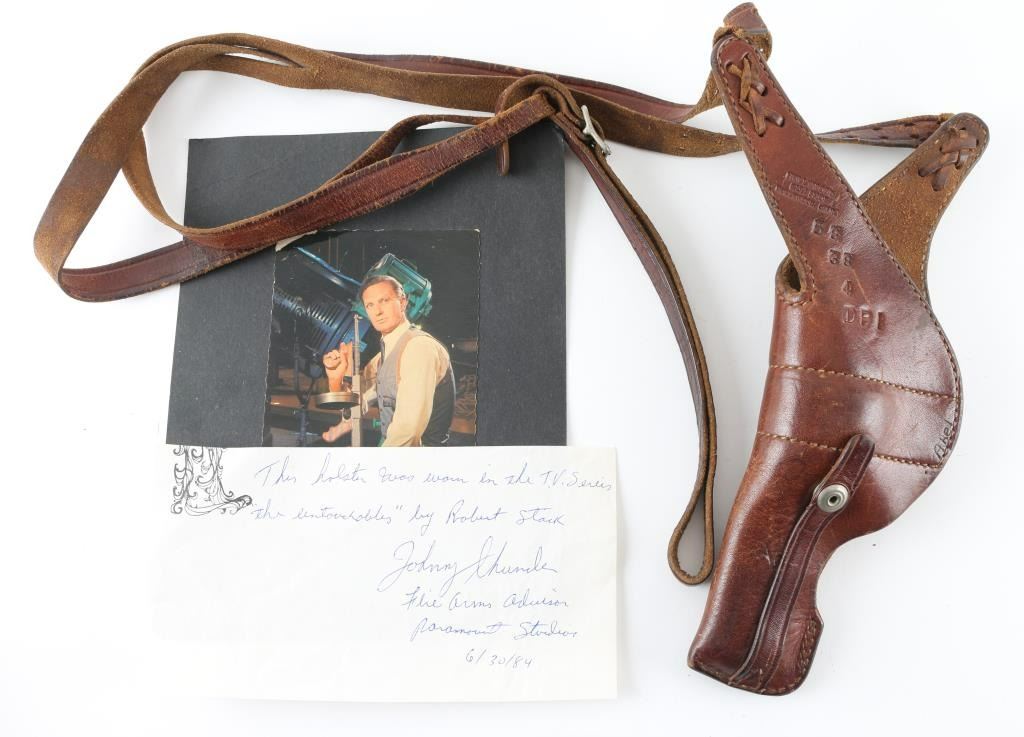 This holster was worn in the T.V. Sereis
"the untouchables" by Robert Stack
Johnny Thunder
Fire Arms Advisor
Paramount Studios
6/30/84
58
38
4
DPI